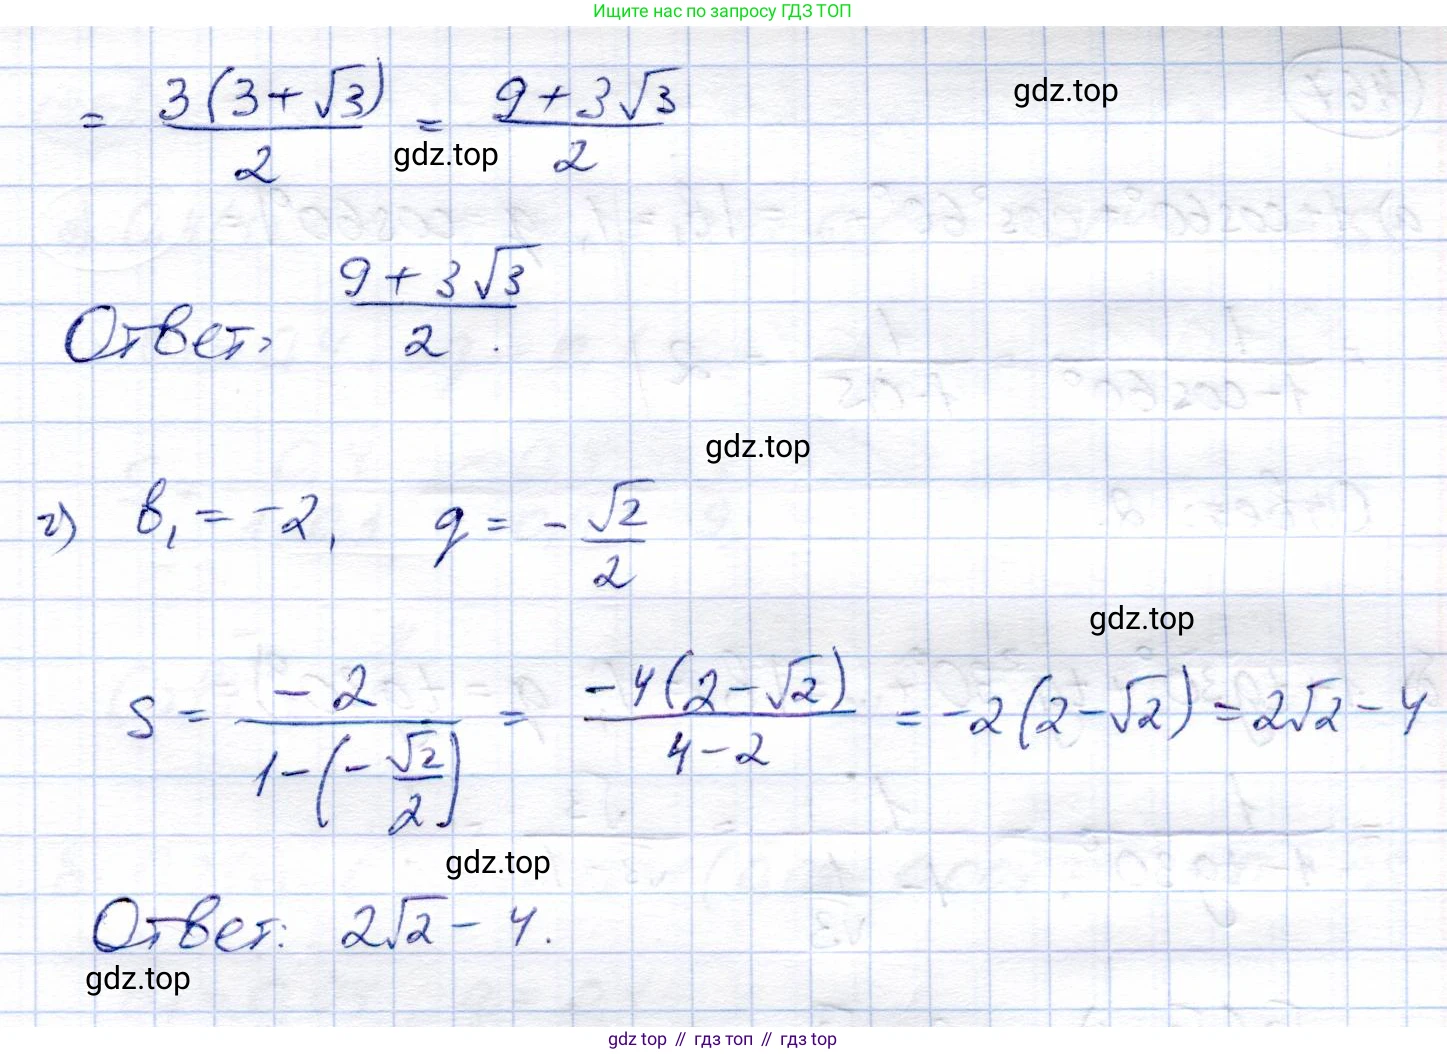 Ищите нас по запросу ГДЗ ТОП
= 3(3+√3)/2 = (9+3√3)/2
gdz.top
gdz.top
Ответ: (9+3√3)/2.
gdz.top
г) b₁ = -2, q = -√2/2
gdz.top
S = -2/(1-(-√2/2)) = -4(2-√2)/(4-2) = -2(2-√2) = 2√2-4
gdz.top
Ответ: 2√2-4.
gdz.top
gdz top // гдз топ // gdz top